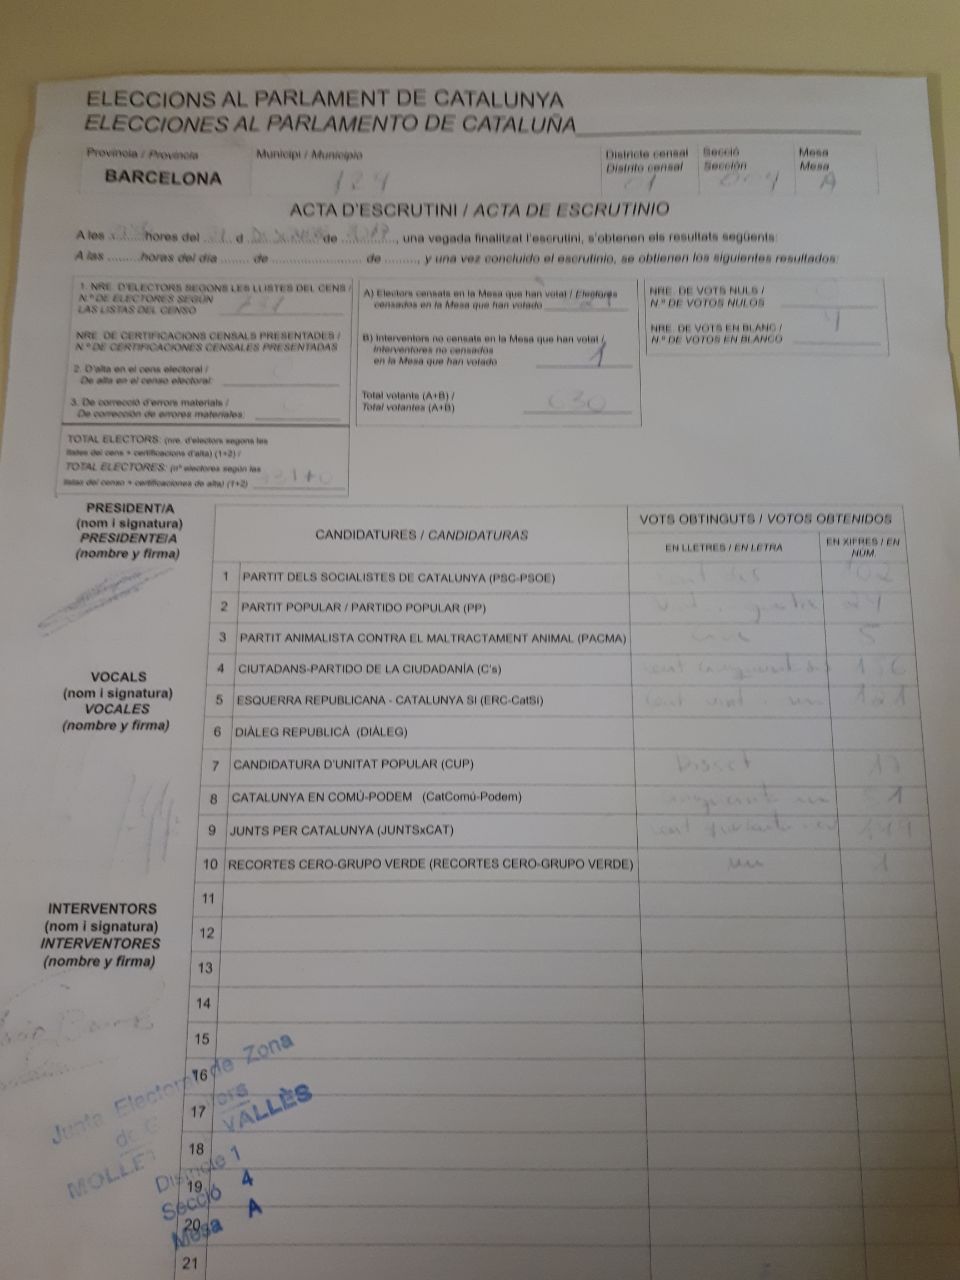 ELECCIONS AL PARLAMENT DE CATALUNYA
ELECCIONES AL PARLAMENTO DE CATALUÑA
Província / Provincia
Municipi / Municipio
Districte censal
Distrito censal
Secció
Sección
Mesa
Mesa
BARCELONA
124
01
004
A
ACTA D'ESCRUTINI / ACTA DE ESCRUTINIO
A les hores del d de , una vegada finalitzat l'escrutini, s'obtenen els resultats següents:
A las ........horas del día ....... de ..................... de ........, y una vez concluido el escrutinio, se obtienen los siguientes resultados:
1. NRE. D'ELECTORS SEGONS LES LLISTES DEL CENS /
N.º DE ELECTORES SEGÚN
LAS LISTAS DEL CENSO
NRE. DE CERTIFICACIONS CENSALS PRESENTADES /
N.º DE CERTIFICACIONES CENSALES PRESENTADAS
2. D'alta en el cens electoral /
De alta en el censo electoral:
3. De correcció d'errors materials /
De corrección de errores materiales:
TOTAL ELECTORS: (nre. d'electors segons les
llistes del cens + certificacions d'alta) (1+2) /
TOTAL ELECTORES: (nº electores según las
listas del censo + certificaciones de alta) (1+2)
A) Electors censats en la Mesa que han votat / Electores
censados en la Mesa que han votado
B) Interventors no censats en la Mesa que han votat /
Interventores no censados
en la Mesa que han votado
1
Total votants (A+B) /
Total votantes (A+B)
630
NRE. DE VOTS NULS /
N.º DE VOTOS NULOS
NRE. DE VOTS EN BLANC /
N.º DE VOTOS EN BLANCO
4
PRESIDENT/A
(nom i signatura)
PRESIDENTE/A
(nombre y firma)
VOCALS
(nom i signatura)
VOCALES
(nombre y firma)
INTERVENTORS
(nom i signatura)
INTERVENTORES
(nombre y firma)
CANDIDATURES / CANDIDATURAS
VOTS OBTINGUTS / VOTOS OBTENIDOS
EN LLETRES / EN LETRA
EN XIFRES / EN NÚM.
1 PARTIT DELS SOCIALISTES DE CATALUNYA (PSC-PSOE) cent dos 102
2 PARTIT POPULAR / PARTIDO POPULAR (PP) vint i quatre 24
3 PARTIT ANIMALISTA CONTRA EL MALTRACTAMENT ANIMAL (PACMA) 5
4 CIUTADANS-PARTIDO DE LA CIUDADANÍA (C's) cent
5 ESQUERRA REPUBLICANA - CATALUNYA SÍ (ERC-CatSí) cent vint i un 121
6 DIÀLEG REPUBLICÀ (DIÀLEG)
7 CANDIDATURA D'UNITAT POPULAR (CUP) Disset 17
8 CATALUNYA EN COMÚ-PODEM (CatComú-Podem)
9 JUNTS PER CATALUNYA (JUNTSxCAT) cent
10 RECORTES CERO-GRUPO VERDE (RECORTES CERO-GRUPO VERDE) un 1
11
12
13
14
15
16
17
18
19
20
21
Junta Electoral de Zona
VALLÈS
MOLLET
Districte 1
Secció 4
Mesa A